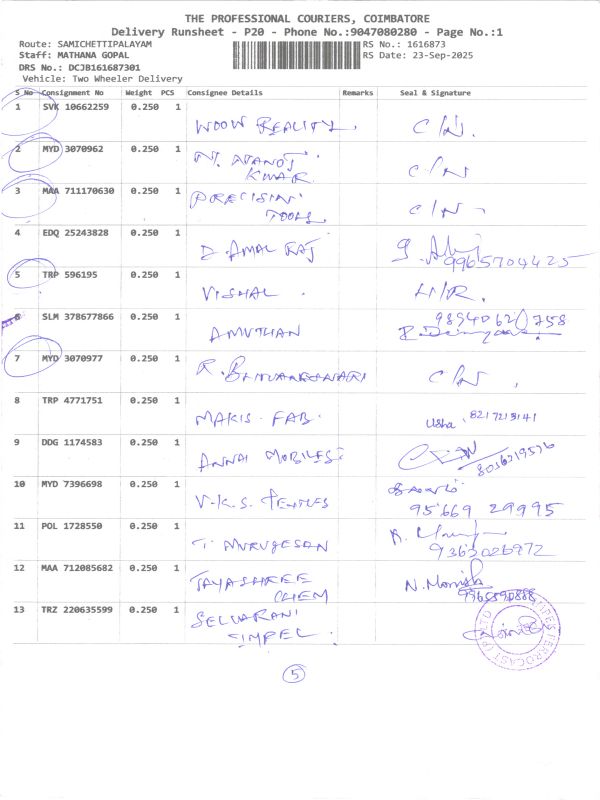 THE PROFESSIONAL COURIERS, COIMBATORE
Delivery Runsheet - P20 - Phone No.:9047080280 - Page No.:1
Route: SAMICHETTIPALAYAM
RS No.: 1616873
Staff: MATHANA GOPAL
RS Date: 23-Sep-2025
DRS No.: DCJB161687301
Vehicle: Two Wheeler Delivery
S No Consignment No Weight PCS Consignee Details Remarks Seal & Signature
1 SVK 10662259 0.250 1 WOOW REALITY. C/N.
2 MYD 3070962 0.250 1 KMAR C/N
3 MAA 711170630 0.250 1 PRECISION TOOLS. C/N
4 EDQ 25243828 0.250 1 D. AMAL RAJ 9965704425
5 TRP 596195 0.250 1 VISHAL. H/R.
6 SLM 378677866 0.250 1 AMUTHAN 758
7 MYD 3070977 0.250 1 R. C/N.
8 TRP 4771751 0.250 1 MAKIS FAB. Usha: 8217213141
9 DDG 1174583 0.250 1 ANNAI MOBILES
10 MYD 7396698 0.250 1 V.K.S. 95669 29995
11 POL 1728550 0.250 1 T. MURUGESAN 9363026972
12 MAA 712085682 0.250 1 JAYASHREE CHEM N. 9965590888
13 TRZ 220635599 0.250 1 SELVARANI
5